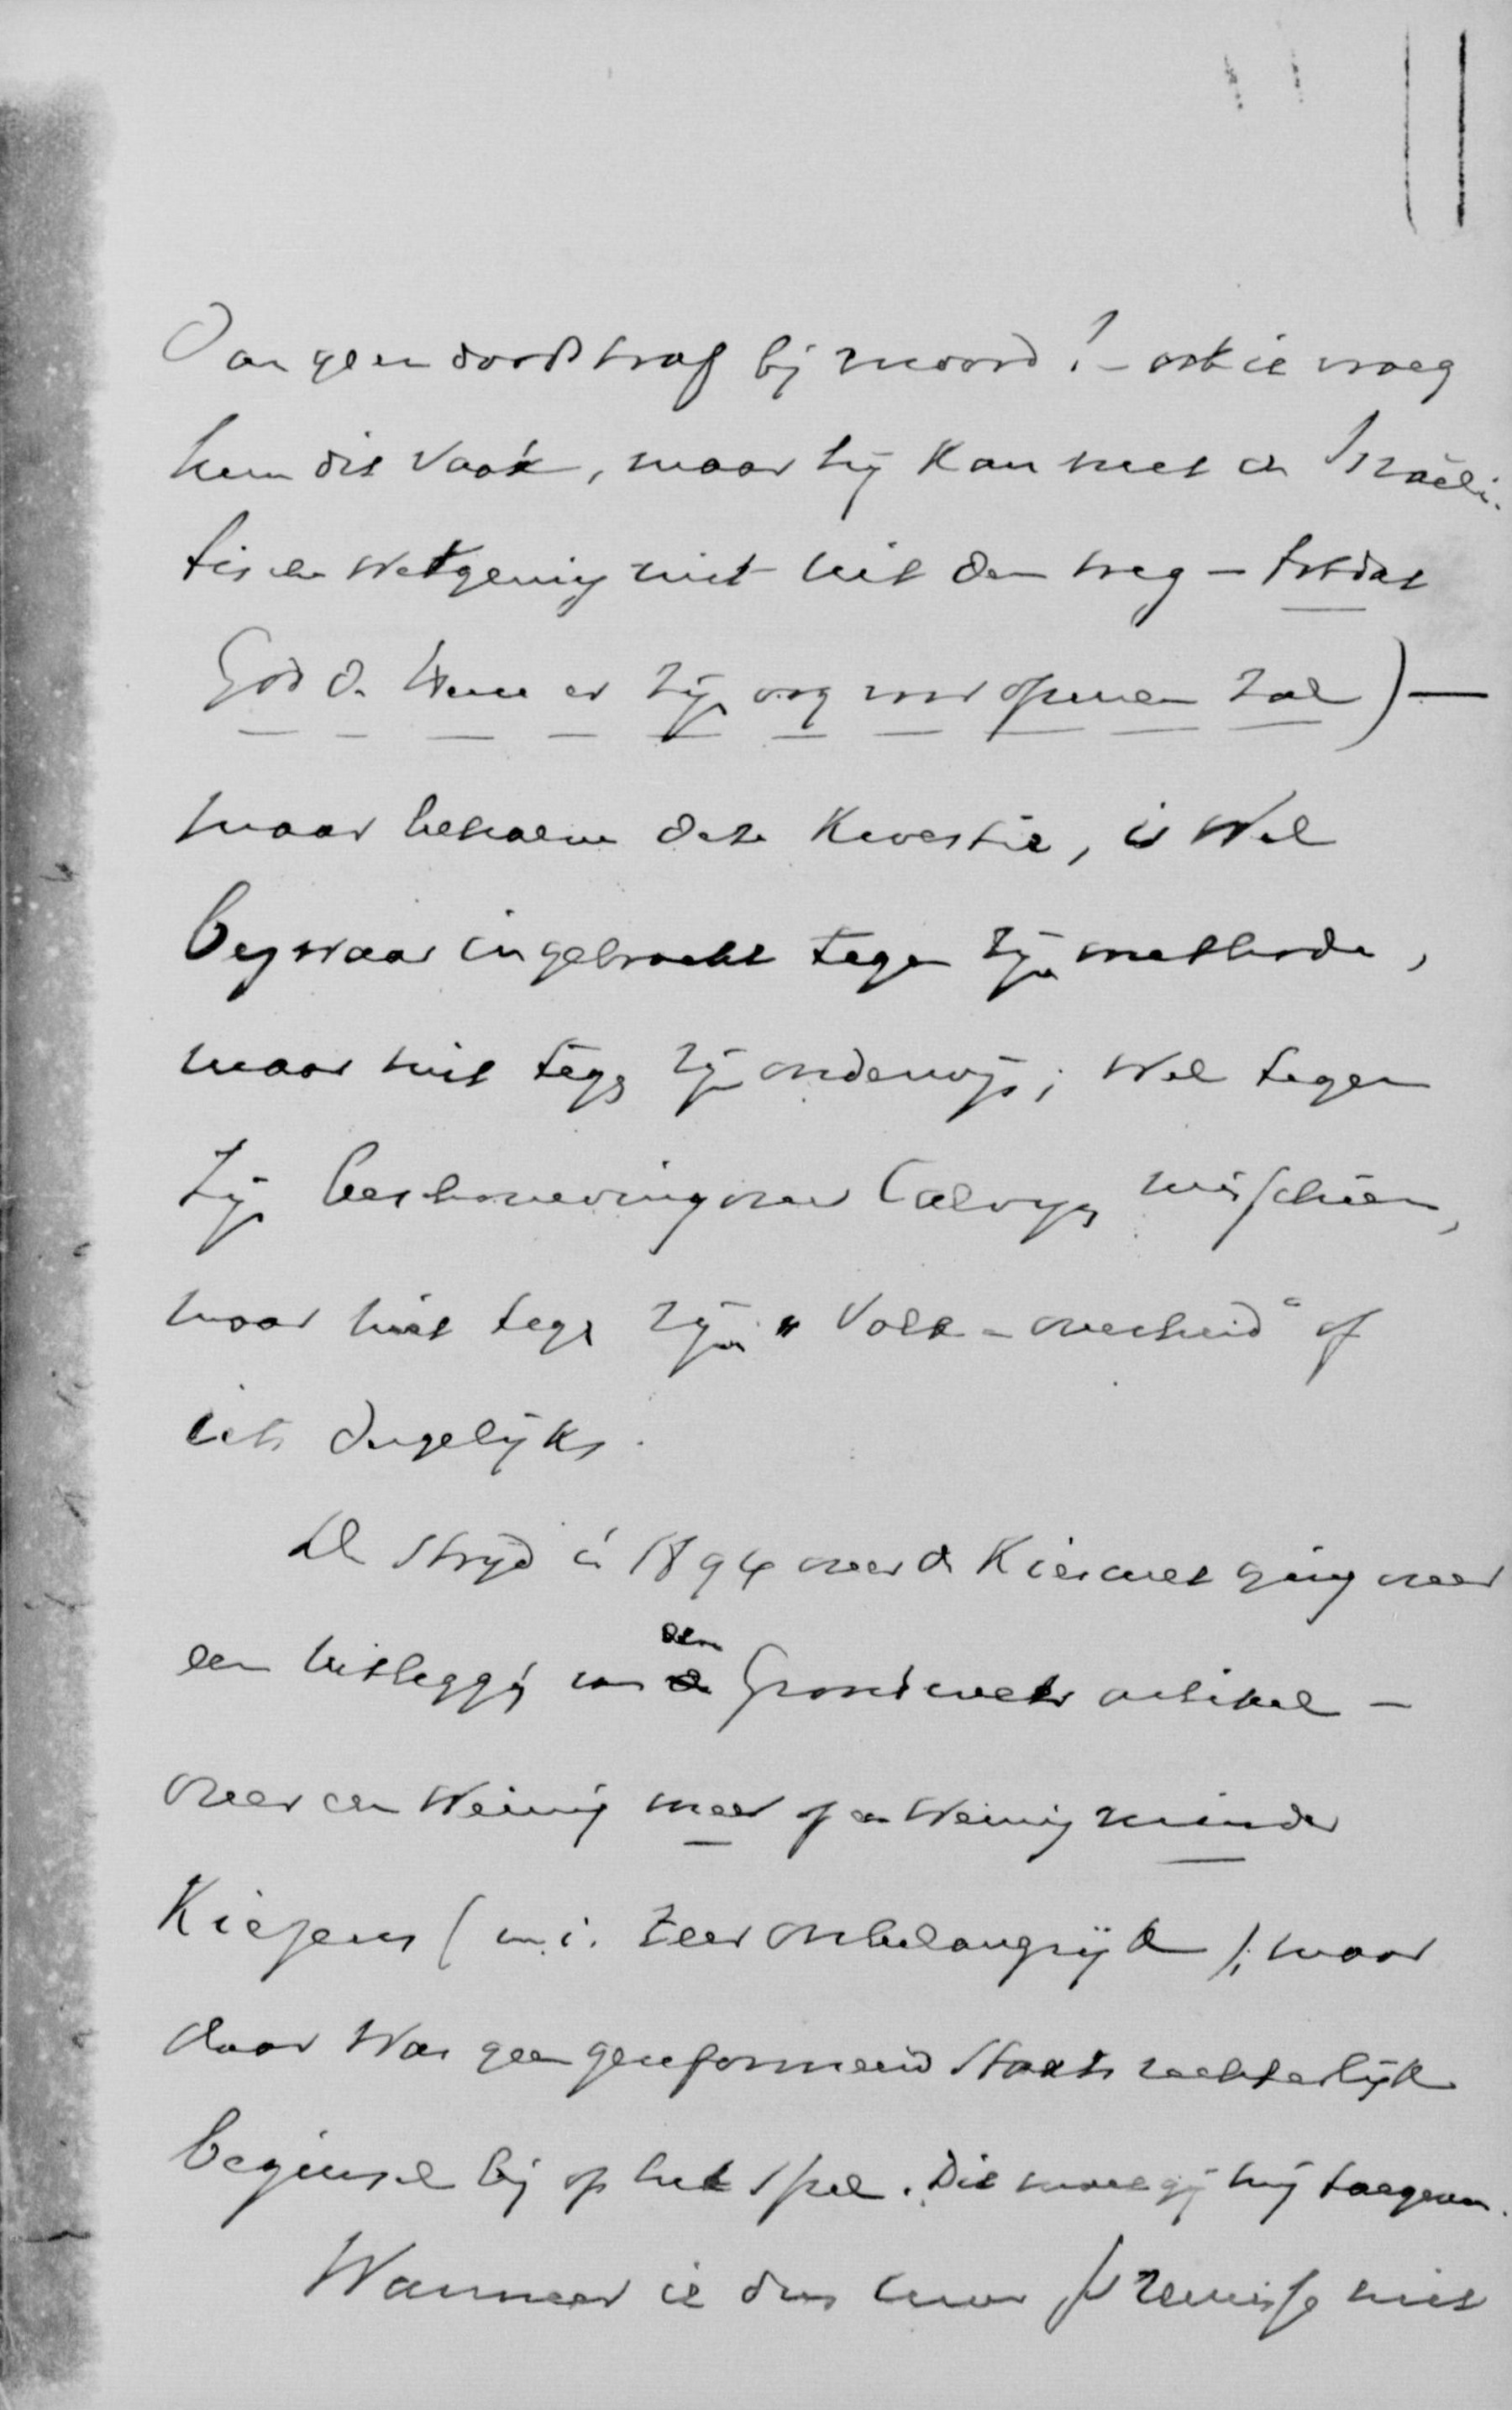 Dan geen doodstraf bij moord! – ook ik vroeg
hem dit vaak, maar hij kan met de Israëli-
tische wetgeving niet uit den weg – totdat
God de Heere er zijn oog voor openen zal) –
maar behalve deze kwestie, is wel
bezwaar ingebracht tegen zijn methode,
maar niet tegen zijn onderwijs; wel tegen
zijn beschouwing over Calvijn misschien,
maar niet tegen zijn "Volk-overheid" of
iets dergelijks.
De strijd in 1894 over de Kieswet ging over
een uitlegging van den Grondwets artikel –
over een weinig meer of een weinig minder
Kiezers (m.i. zeer onbelangrijk); maar
daar was geen gereformeerd Staatsrechterlijk
beginsel bij op het spel. Dit moet gij mij toegeven.
Wanneer ik dus Uwe premisse niet